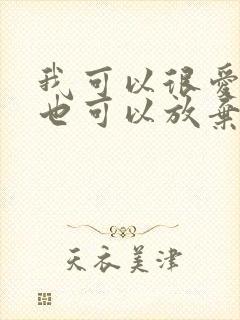 我可以很爱
也可以放弃
天衣美津